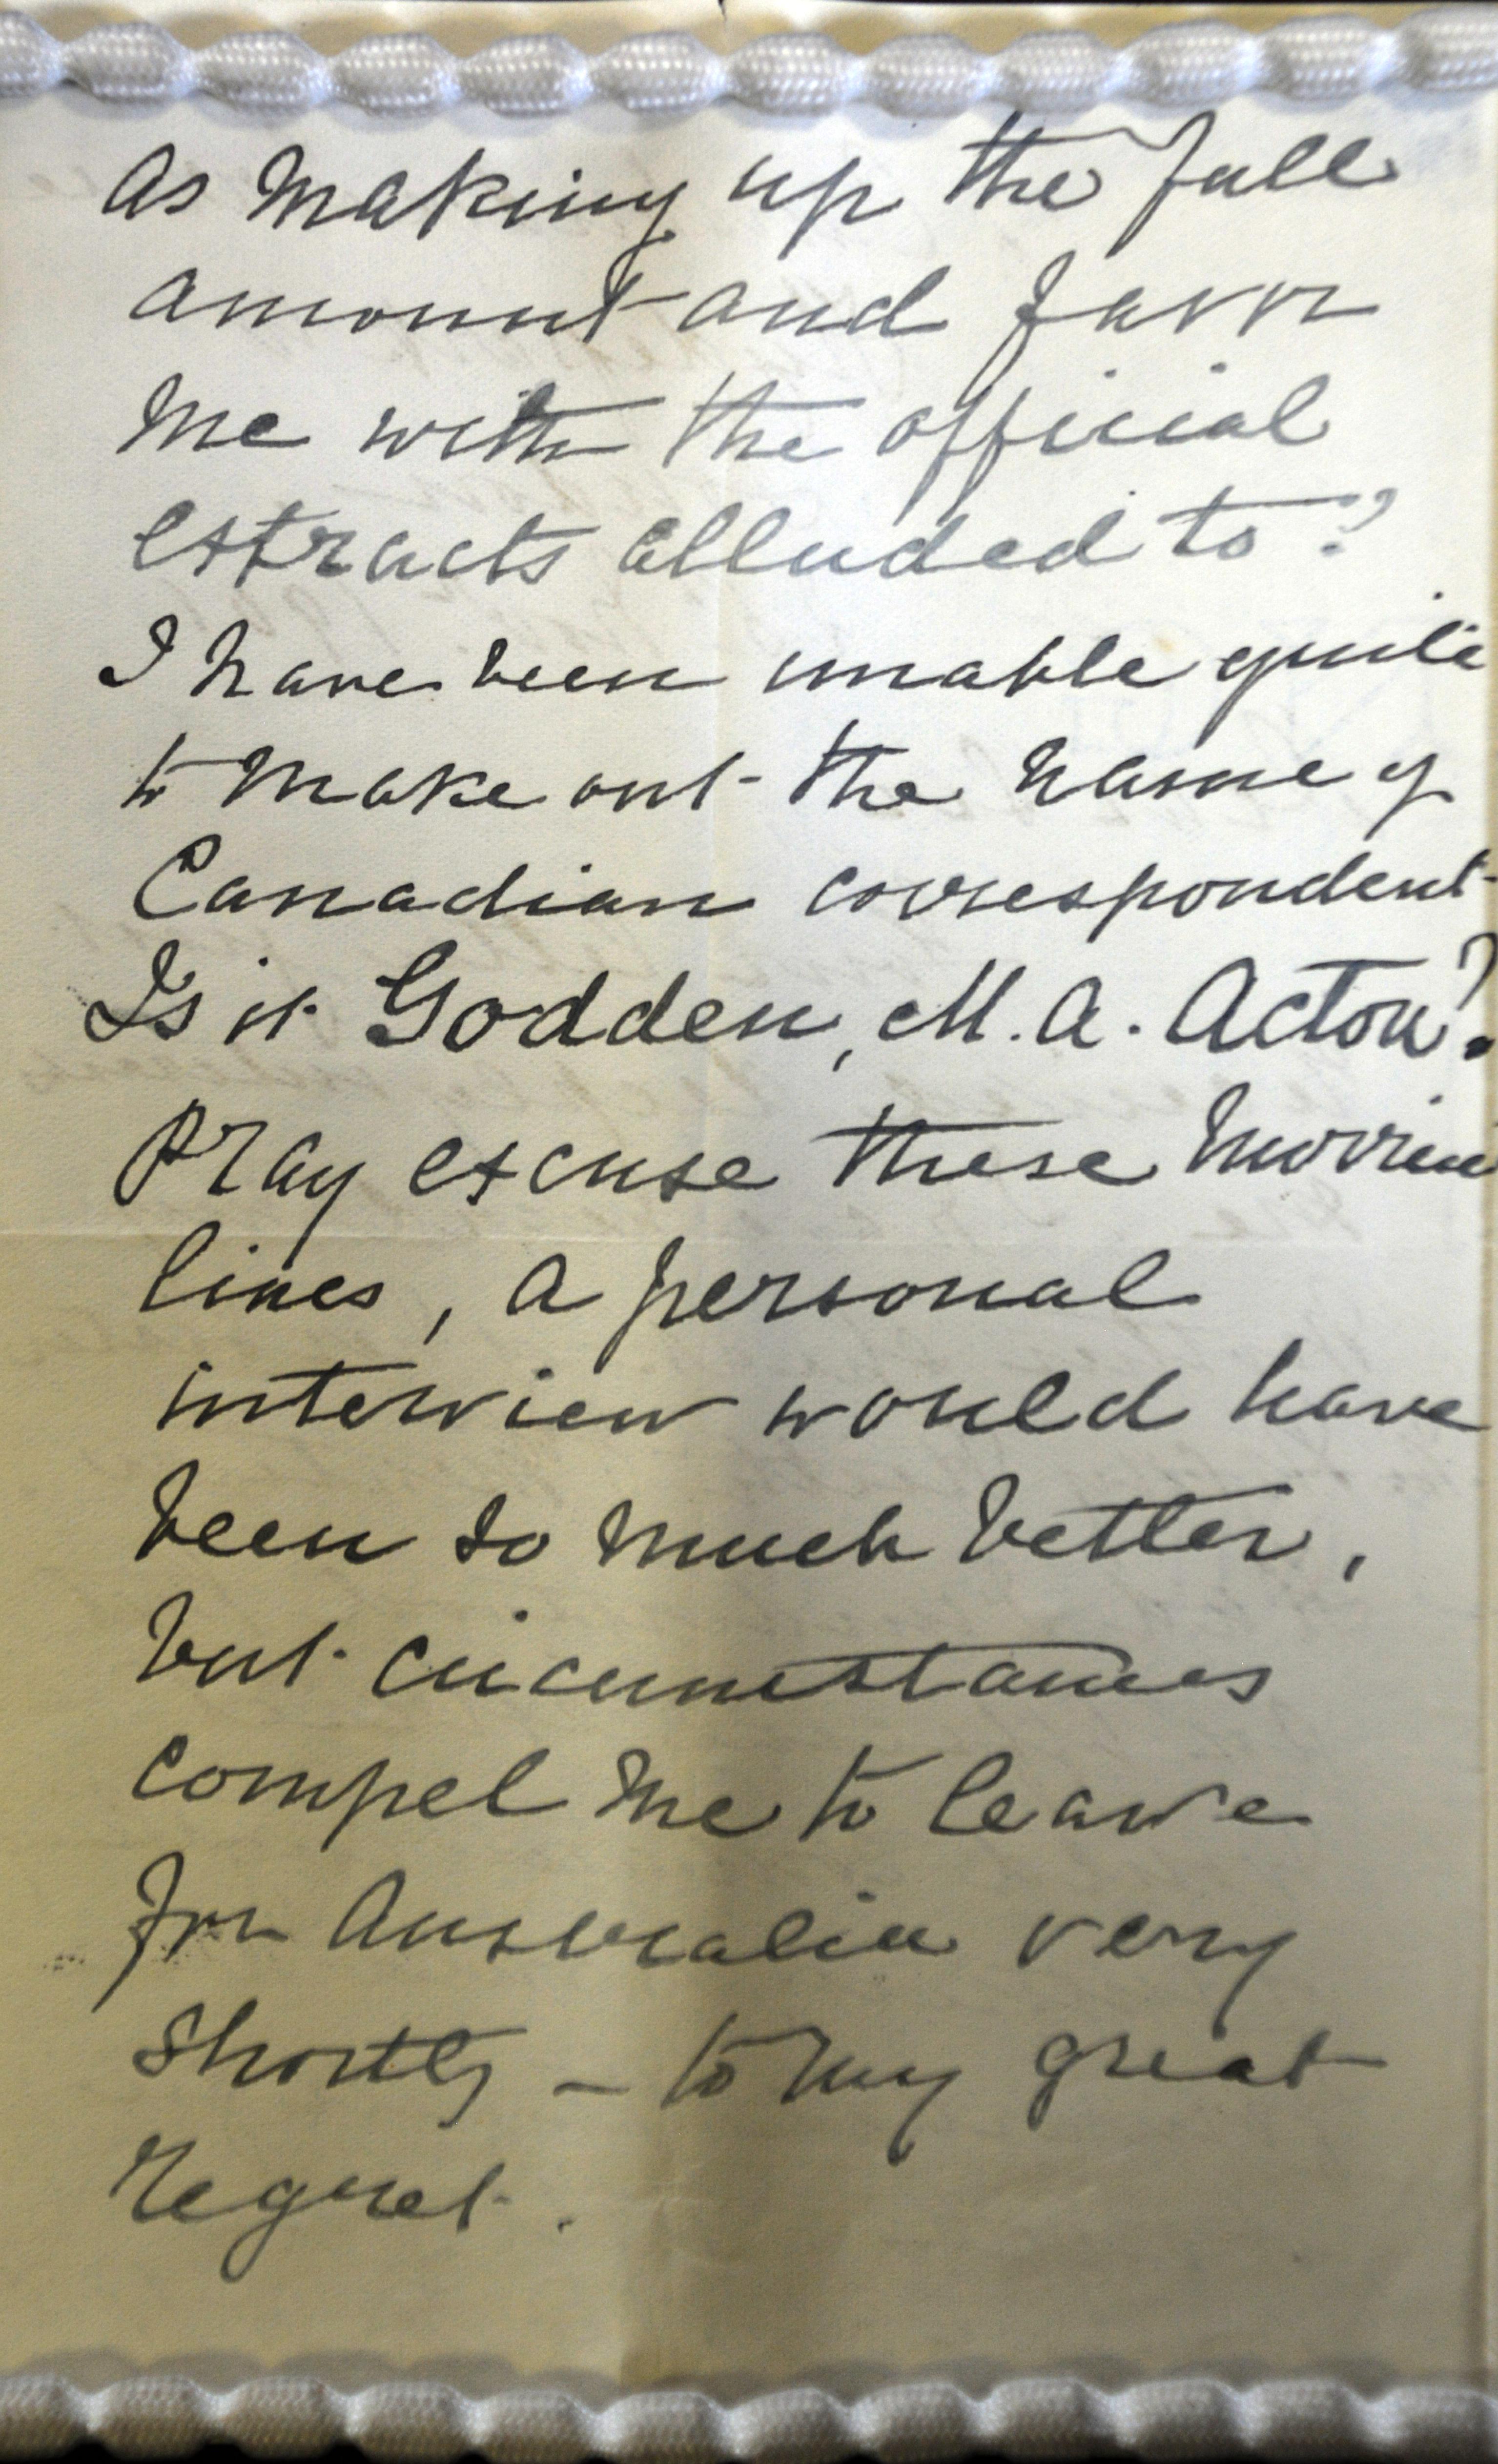 as making up the full
amount and favor
me with the official
extracts alluded to?
I have been unable quite
to make out the name of
Canadian correspondent
Is it Godden, M.A. Acton?
Pray excuse these hurried
lines, a personal
interview would have
been so much better,
but circumstances
compel me to leave
for Australia very
shortly – to my great
regret.